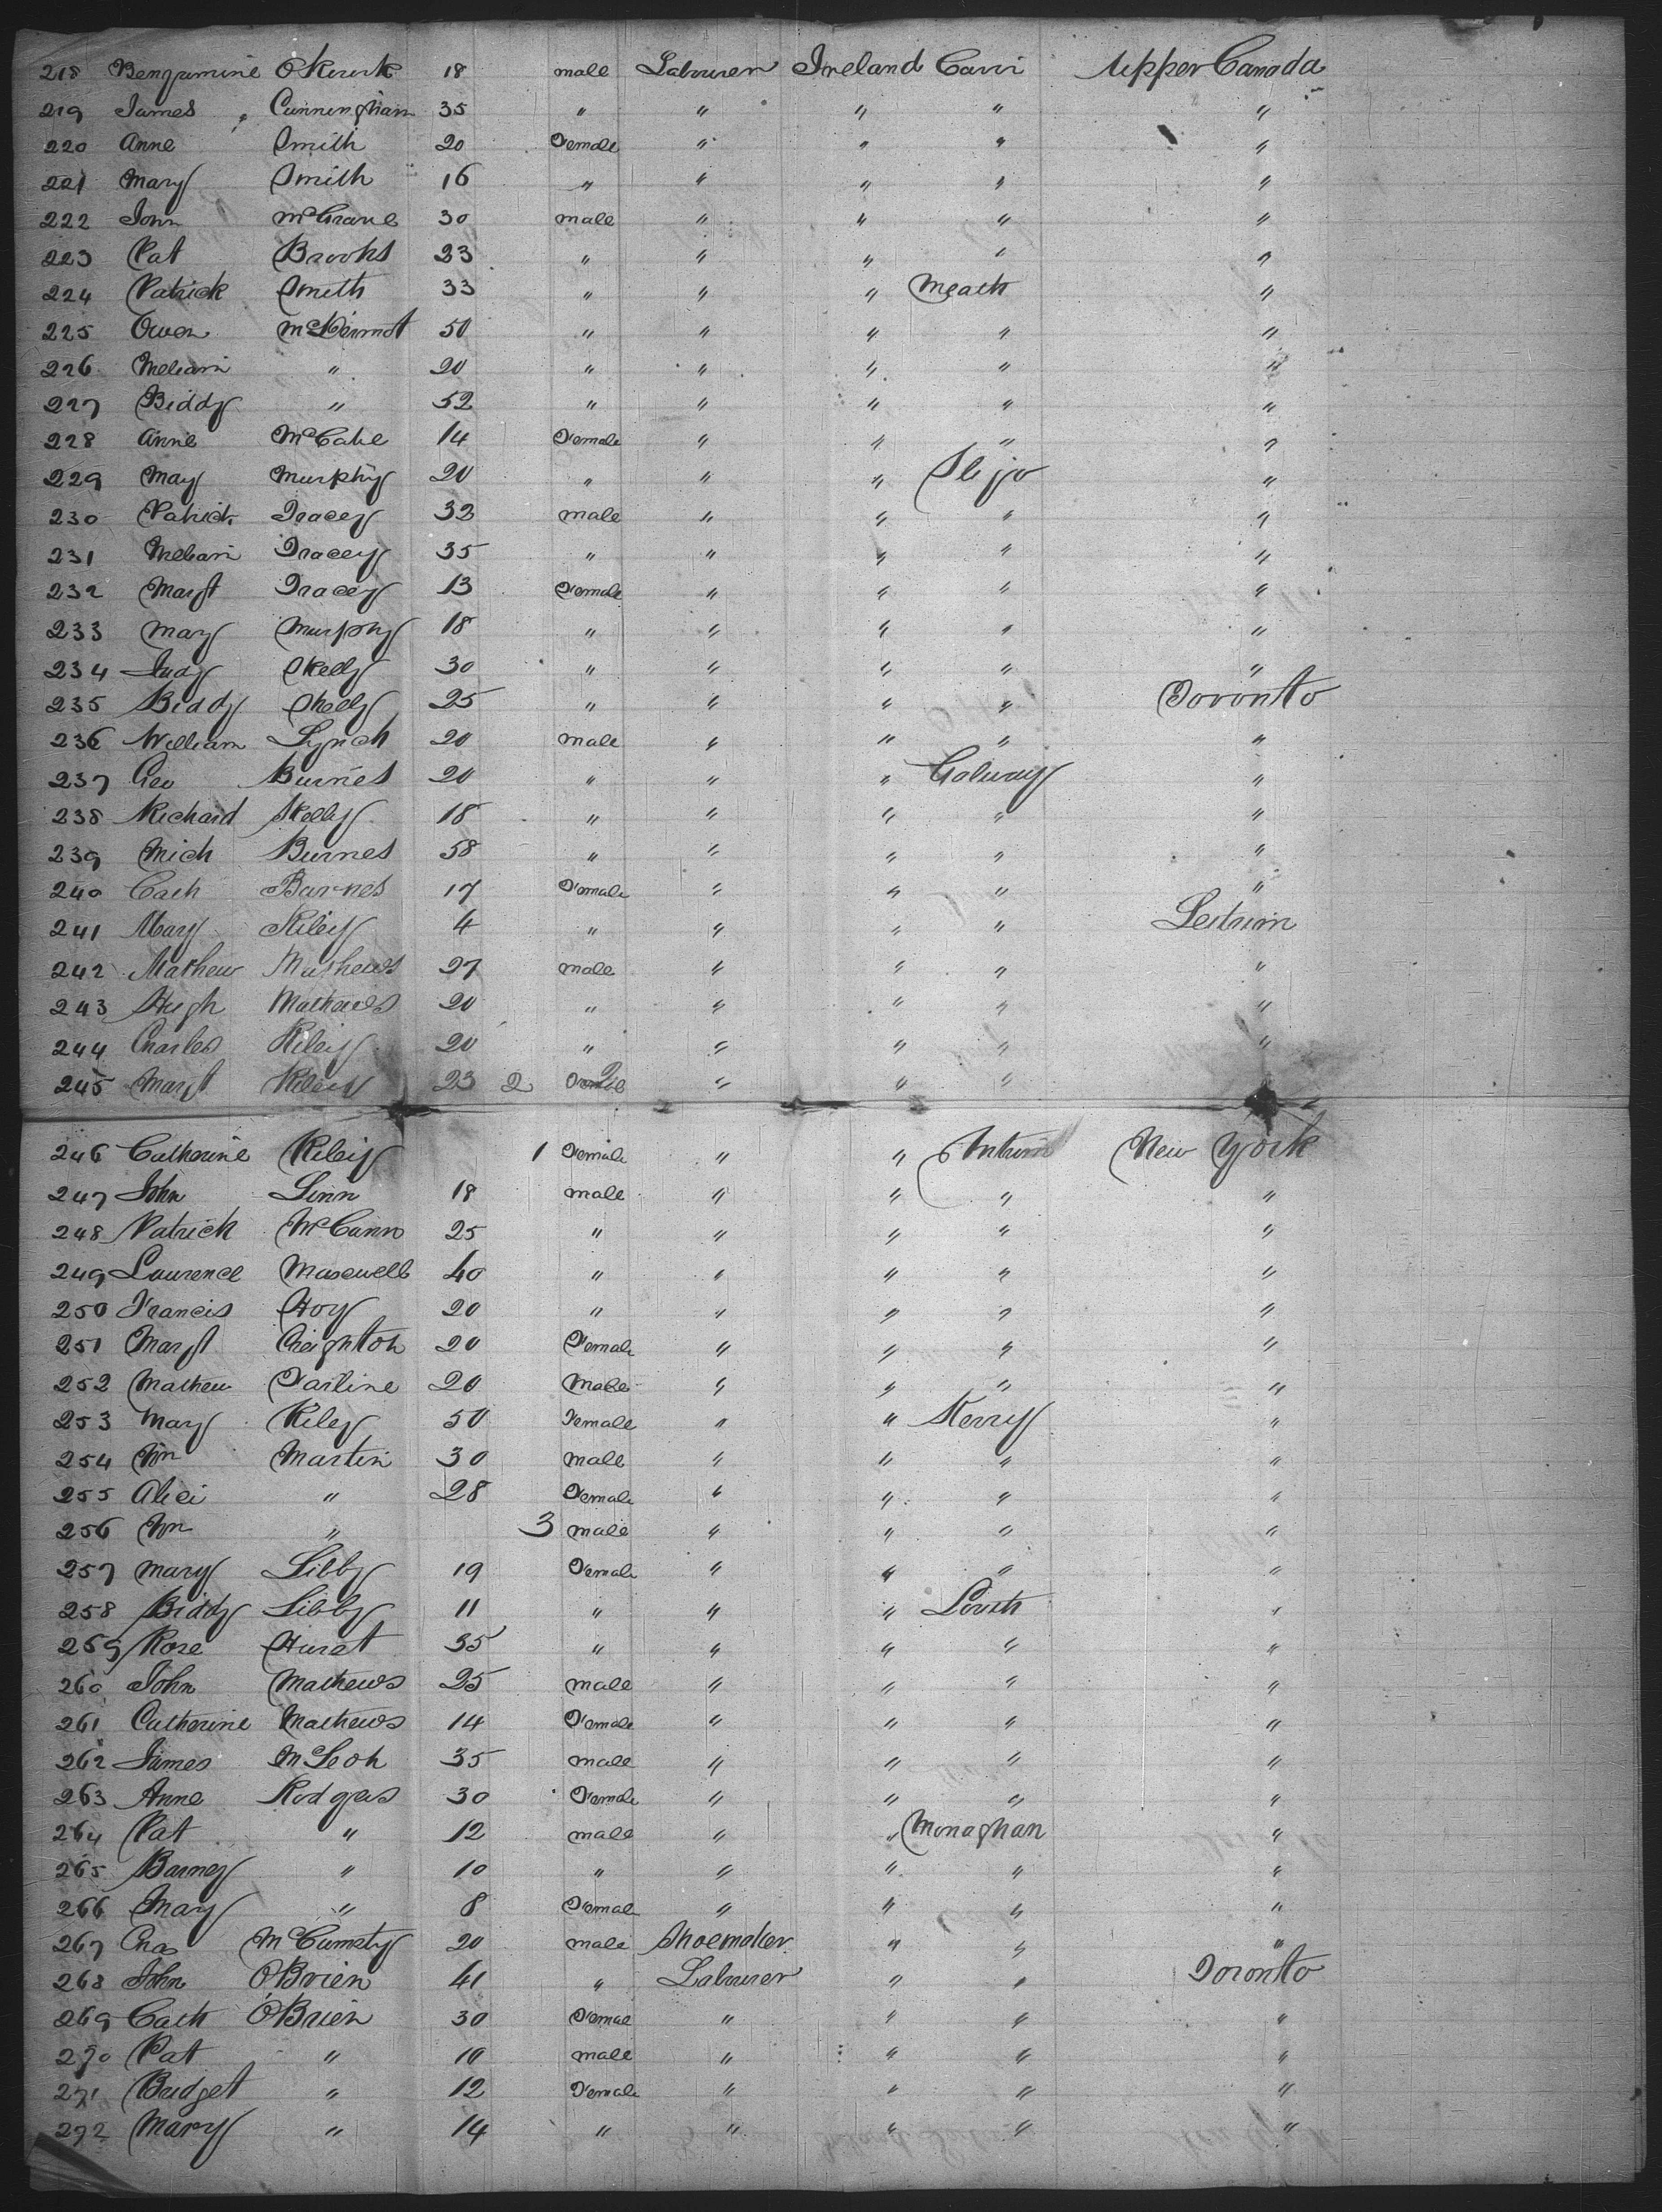 218 Bengamine OKourk 18 male Labourer Ireland Cavi Upper Canada
219 James Cunningham 35 " " " " "
220 Anne Smith 20 Female " " " "
221 Mary Smith 16 " " " " "
222 John McGrane 30 male " " " "
223 Pat Brooks 23 " " " " "
224 Patrick Smith 33 " " " Meath "
225 Owen McDermot 50 " " " " "
226 William " 20 " " " " "
227 Biddy " 52 " " " " "
228 Anne McCabe 14 Female " " " "
229 May Murphy 20 " " " Sligo "
230 Patrick Tracey 32 male " " " "
231 William Tracey 35 " " " " "
232 Margt Tracey 13 Female " " " "
233 May Murphy 18 " " " " "
234 Judy Skelly 30 " " " " "
235 Biddy Skelly 25 " " " " Toronto
236 William Lynch 20 male " " " "
237 Geo Burnes 20 " " " Galway "
238 Richard Skelly 18 " " " " "
239 Mich Burnes 58 " " " " "
240 Cath Barnes 17 Female " " " "
241 Mary Riley 4 " " " " Leitrim
242 Mathew Mathews 27 male " " " "
243 Hugh Mathews 20 " " " " "
244 Charles Riley 20 " " " " "
245 Margt Riley 23 2 " " "
246 Catherine Riley 1 Female " " Antrim New York
247 John Linn 18 male " " " "
248 Patrick McCann 25 " " " " "
249 Laurence Maxwell 40 " " " " "
250 Francis Hoy 20 " " " " "
251 Margt Creighton 20 Female " " " "
252 Mathew Farline 20 Male " " " "
253 May Riley 50 Female " " Kerry "
254 Wm Martin 30 male " " " "
255 Alici " 28 Female " " " "
256 Wm " 3 male " " " "
257 Mary Libby 19 Female " " " "
258 Biddy Libby 11 " " " Louth "
259 Rose Hurst 35 " " " " "
260 John Mathews 25 male " " " "
261 Catherine Mathews 14 Female " " " "
262 James McLeoh 35 male " " " "
263 Anne Rodgers 30 Female " " " "
264 Pat " 12 male " " Monaghan "
265 Barney " 10 " " " " "
266 May " 8 Female " " " "
267 Chas McCumsty 20 male Shoemaker " " "
268 John O'Brien 41 " Labourer " " Toronto
269 Cath O'Brien 30 Femal " " " "
270 Pat " 10 male " " " "
271 Bridget " 12 Female " " " "
272 Mary " 14 " " " " "